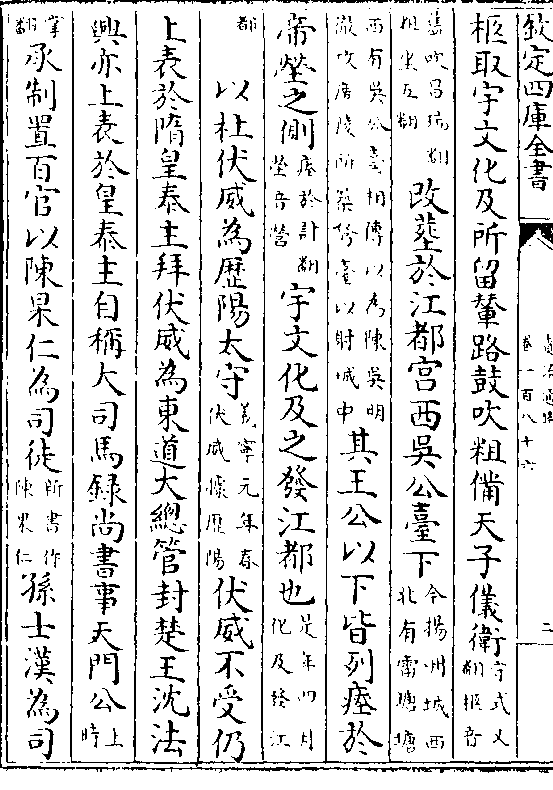 欽定四庫全書
卷一百八十六
二
柩取宇文化及所留輦路鼓吹粗備天子儀衛守式又翻柩音
舊吹昌瑞翻粗坐五翻改葬於江都宮西吳公臺下今揚州城西北有雷塘塘
西有吳公臺相傳以為陳吳明徹攻廣陵所築弩臺以射城中其王公以下皆列瘞於
帝塋之側瘞於計翻塋音營宇文化及之發江都也是年四月化及發江
都以杜伏威為歷陽太守義寧元年春伏威據歷陽伏威不受仍
上表於隋皇泰主拜伏威為東道大總管封楚王沈法
興亦上表於皇泰主自稱大司馬錄尚書事天門公上時
掌翻承制置百官以陳果仁為司徒新書作陳果仁孫士漢為司